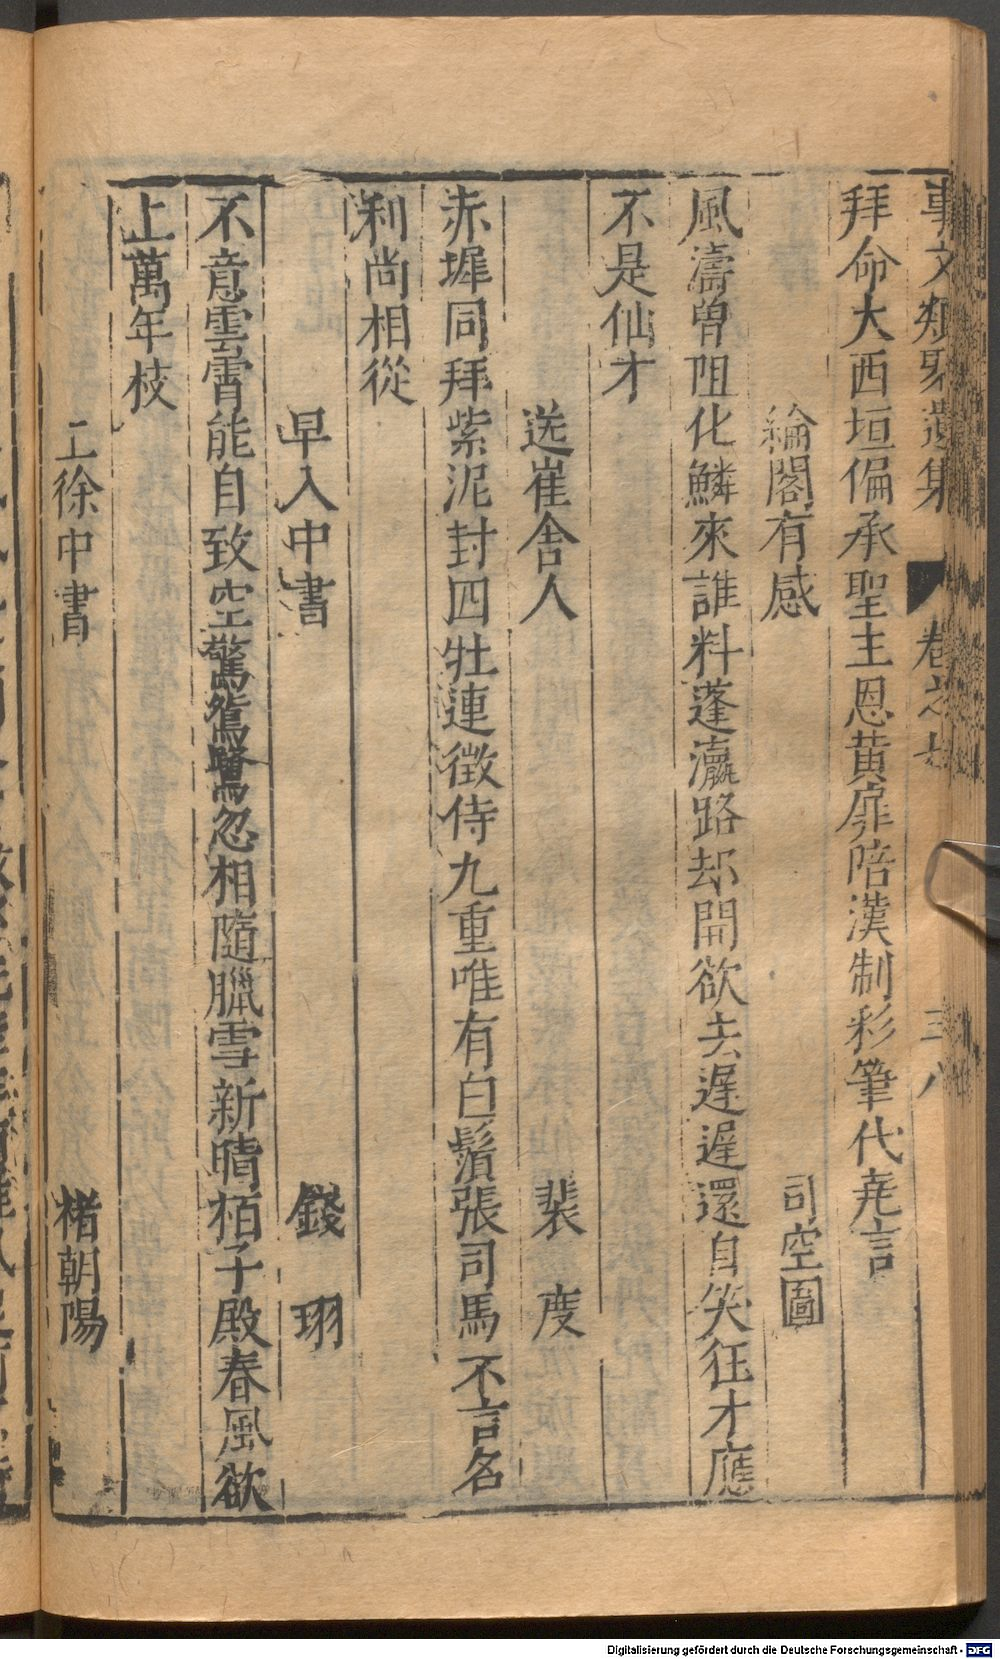 事文類聚遺集 卷之七 三八
拜命大西垣偏承聖主恩黄扉陪漢制彩筆代堯言
綸閣有感 司空圖
風濤曽阻化鱗來誰料蓬瀛路却開欲去遲遲還自笑狂才應
不是仙才
送崔舎人 裴度
赤墀同拜紫泥封四牡連徵侍九重唯有白鬚張司馬不言名
利尚相從
早入中書 錢珝
不意雲霄能自致空驚鴛鷺忽相隨臘雪新晴栢子殿春風欲
上萬年枝
上徐中書 楮朝陽
Digitalisierung gefördert durch die Deutsche Forschungsgemeinschaft - DFG